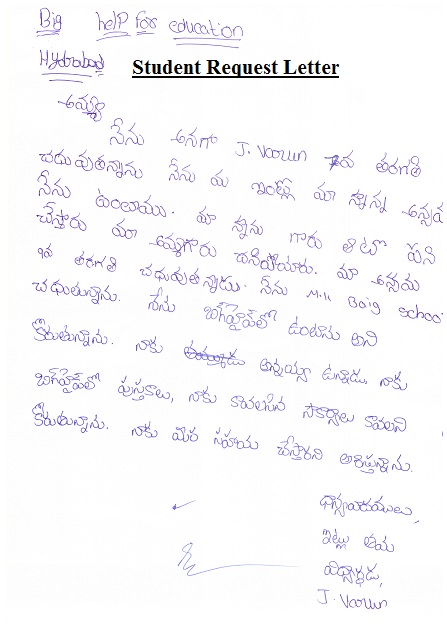 Big help for education
Hyderabad
Student Request Letter
అమ్మా
నేను అనగా J. Varun వ తరగతి
చదువుతున్నాను నేను మా ఇంట్లో మా నాన్న అన్నయ
నేను ఉంటాము. మా నాన్న గారు ఆటో పని
చేస్తారు మా అమ్మగారు చనిపోయారు. మా అన్నయ
10వ తరగతి చదువుతున్నాడు. నేను M.K Baig School
చదుతున్నాను. నేను బిగ్‌హెల్ప్‌లో ఉంటాను అని
కోరుతున్నాను. నాకు అన్నయ్యా ఉన్నాడు నాకు
బిగ్‌హెల్ప్‌లో పుస్తకాలు, నాకు కావలసిన సౌకర్యాలు కావాలని
కోరుతున్నాను. నాకు మీరు సహాయ చేస్తారని ఆశిస్తున్నాను.
ధాన్యవాదములు,
ఇట్లు తమ
విద్యార్థుడు,
J. Varun